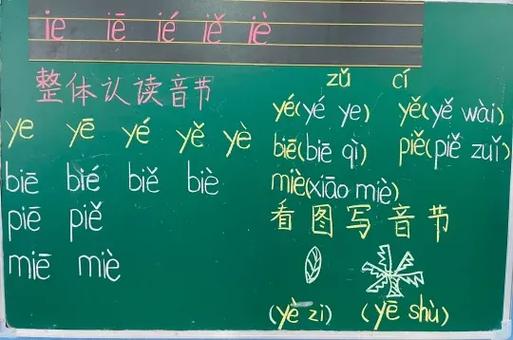 ie iē ié iě iè
整体认读音节
ye yē yé yě yè
biē bié biě biè
piē piě
miē miè
zǔ cí
yé(yé ye) yě(yě wài)
biē(biē qì) piě(piě zuǐ)
miè(xiāo miè)
看图写音节
(yè zi) (yē shù)